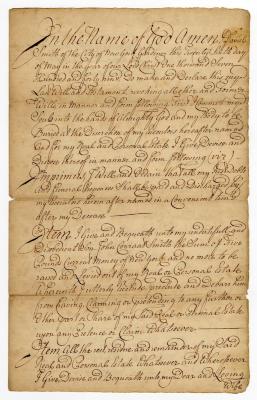 In the Name of God Amen I David
Smith of the City of New York this Twenty day
of May in the Year of our Lord One thousand Seven
hundred and forty do make and Declare this my
Last Will and Testament revoking all other and former
Wills in manner and form following First I commit my
Soul into the hands of Almighty God and my body to be
Buried at the Discretion of my Executors hereafter named
and for my Real and personal Estate I Give Devise and
Dispose thereof in manner and form following (viz)
Imprimis I Will and Ordain that all my Just Debts
and funeral Expenses Shall be paid and Discharged by
my Executors herein after named in a Convenient time
after my Decease
Item I Give and Bequeath unto my undutifull and
Disobedient Son John Conrad Smith the Sum of Five
Pound Current Money of New York and no more to be
raised and Levied out of my Real or Personal Estate
hereby utterly Exclude and debarr him
from having Claiming or pretending to any further or
other Part or Share of my said Real or Personal Estate
upon any Pretence or Claim Whatsoever
Item All the rest residue and remainder of my said
Real and Personal Estate Whatsoever and Wheresoever
I Give Devise and Bequeath unto my Dear and Loving
Wife